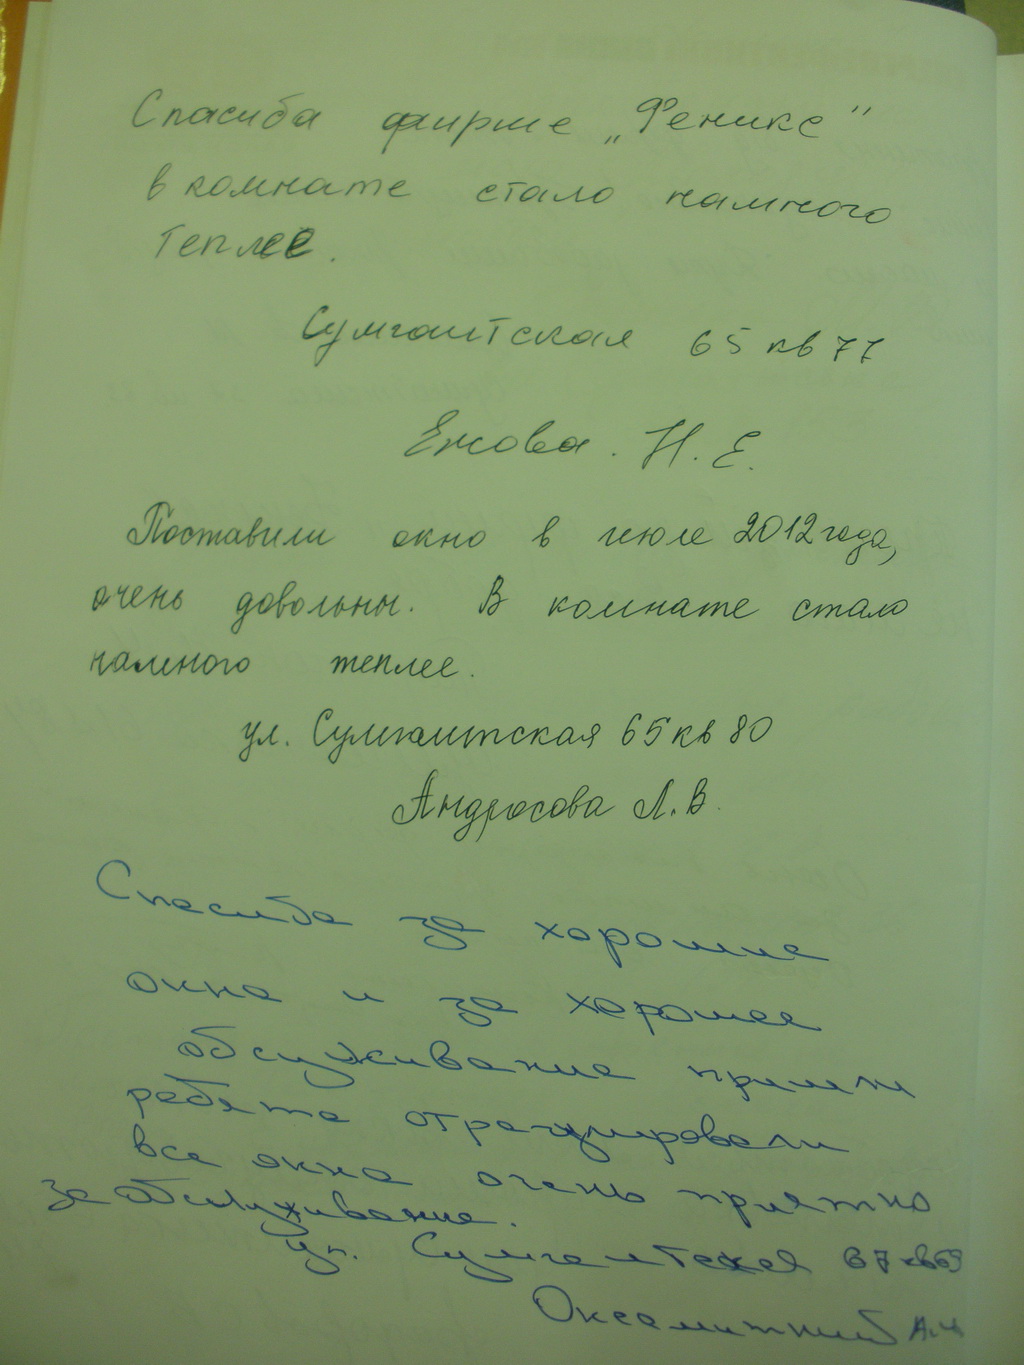 Спасиба фирме „Феникс"
в комнате стало намного
теплее.
Сумгаитская 65 кв 77
Ежова. Н. Е.
Поставили окно в июле 2012 года,
очень довольны. В комнате стало
намного теплее.
ул. Сумгаитская 65 кв 80
Андросова Л. В.
Спасиба за хорошие
окна и за хорошее
обсуживание пришли
ребята отрегулировали
все окна очень приятно
за обслуживание.
ул. Сумгаитская 67 кв 69
Оксамитный